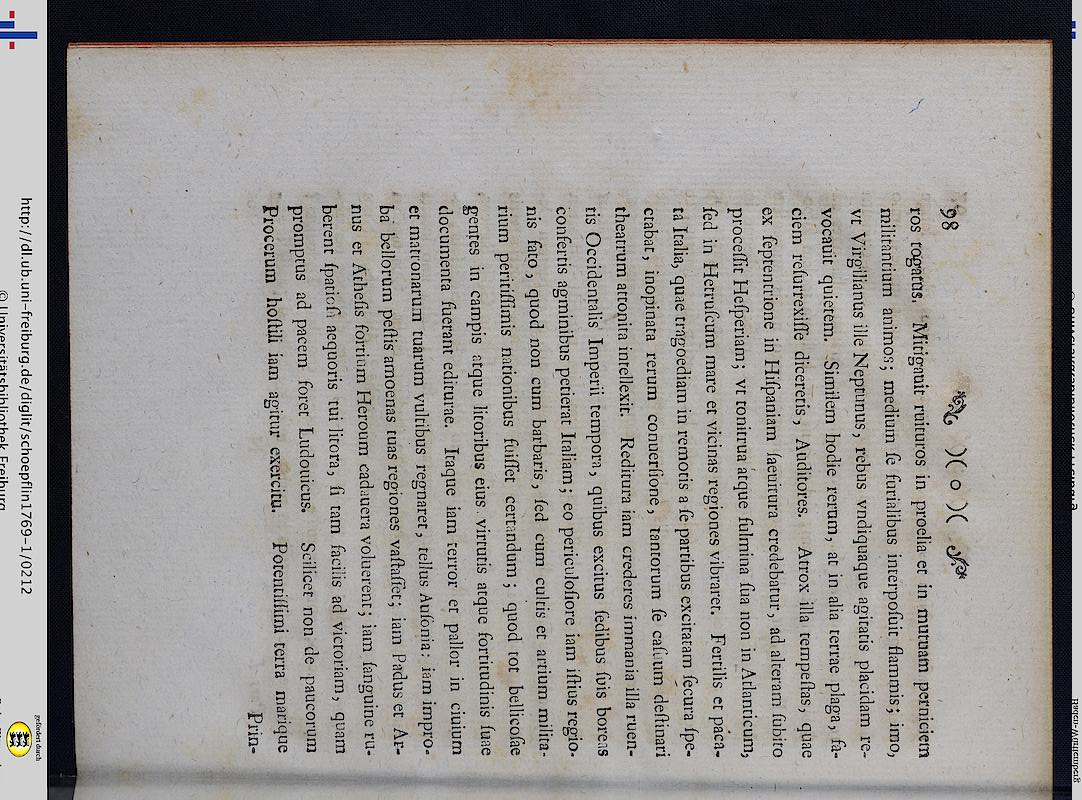 98 )( o )(
ros togatus. Mitigauit ruituros in proelia et in mutuam perniciem
militantium animos; medium ſe furialibus interpoſuit flammis; imo,
vt Virgilianus ille Neptunus, rebus vndiquaque agitatis placidam re-
vocauit quietem. Similem hodie rerum, at in alia terrae plaga, fa-
ciem reſurrexiſſe diceretis, Auditores. Atrox illa tempeſtas, quae
ex ſeptentrione in Hiſpaniam ſaeuitura credebatur, ad alteram ſubito
proceſſit Heſperiam; vt tonitrua atque fulmina ſua non in Atlanticum,
ſed in Hetruſcum mare et vicinas regiones vibraret. Fertilis et paca-
ta Italia, quae tragoediam in remotis a ſe partibus excitatam ſecura ſpe-
ctabat, inopinata rerum conuerſione, tantorum ſe caſuum deſtinari
theatrum attonita intellexit. Reditura iam crederes immania illa ruen-
tis Occidentalis Imperii tempora, quibus excitus ſedibus ſuis boreas
confertis agminibus petierat Italiam; eo periculoſiore iam iſtius regio-
nis fato, quod non cum barbaris, ſed cum cultis et artium milita-
rium peritiſſimis nationibus fuiſſet certandum; quod tot bellicoſae
gentes in campis atque litoribus eius virtutis atque fortitudinis ſuae
documenta fuerant editurae. Itaque iam terror et pallor in ciuium
et matronarum tuarum vultibus regnaret, tellus Auſonia: iam impro-
ba bellorum peſtis amoenas tuas regiones vaſtaſſet; iam Padus et Ar-
nus et Atheſis fortium Heroum cadauera voluerent; iam ſanguine ru-
berent ſpatioſi aequoris tui litora, ſi tam facilis ad victoriam, quam
promptus ad pacem foret Ludouicus. Scilicet non de paucorum
Procerum hoſtili iam agitur exercitu. Potentiſſimi terra marique
Prin-
http://dl.ub.uni-freiburg.de/diglit/schoepflin1769-1/0212
© Universitätsbibliothek Freiburg
gefördert durch